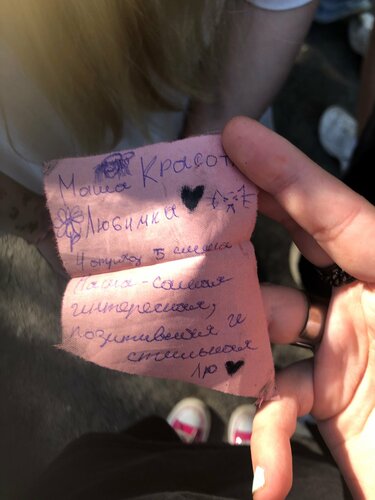 Маша Красот
Любимка
4 отряд 5 смена
Маша - самая
интересная,
позитивная и
стильная